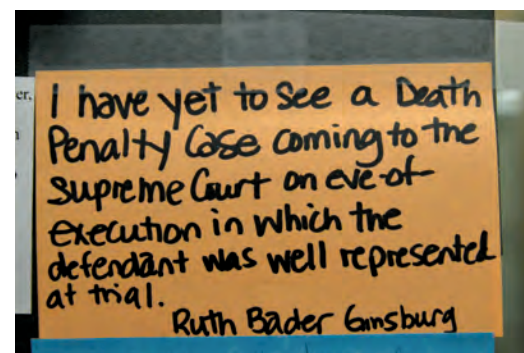 er,
I have yet to see a Death
Penalty Case coming to the
Supreme Court on eve-of-
execution in which the
defendant was well represented
at trial.
Ruth Bader Ginsburg